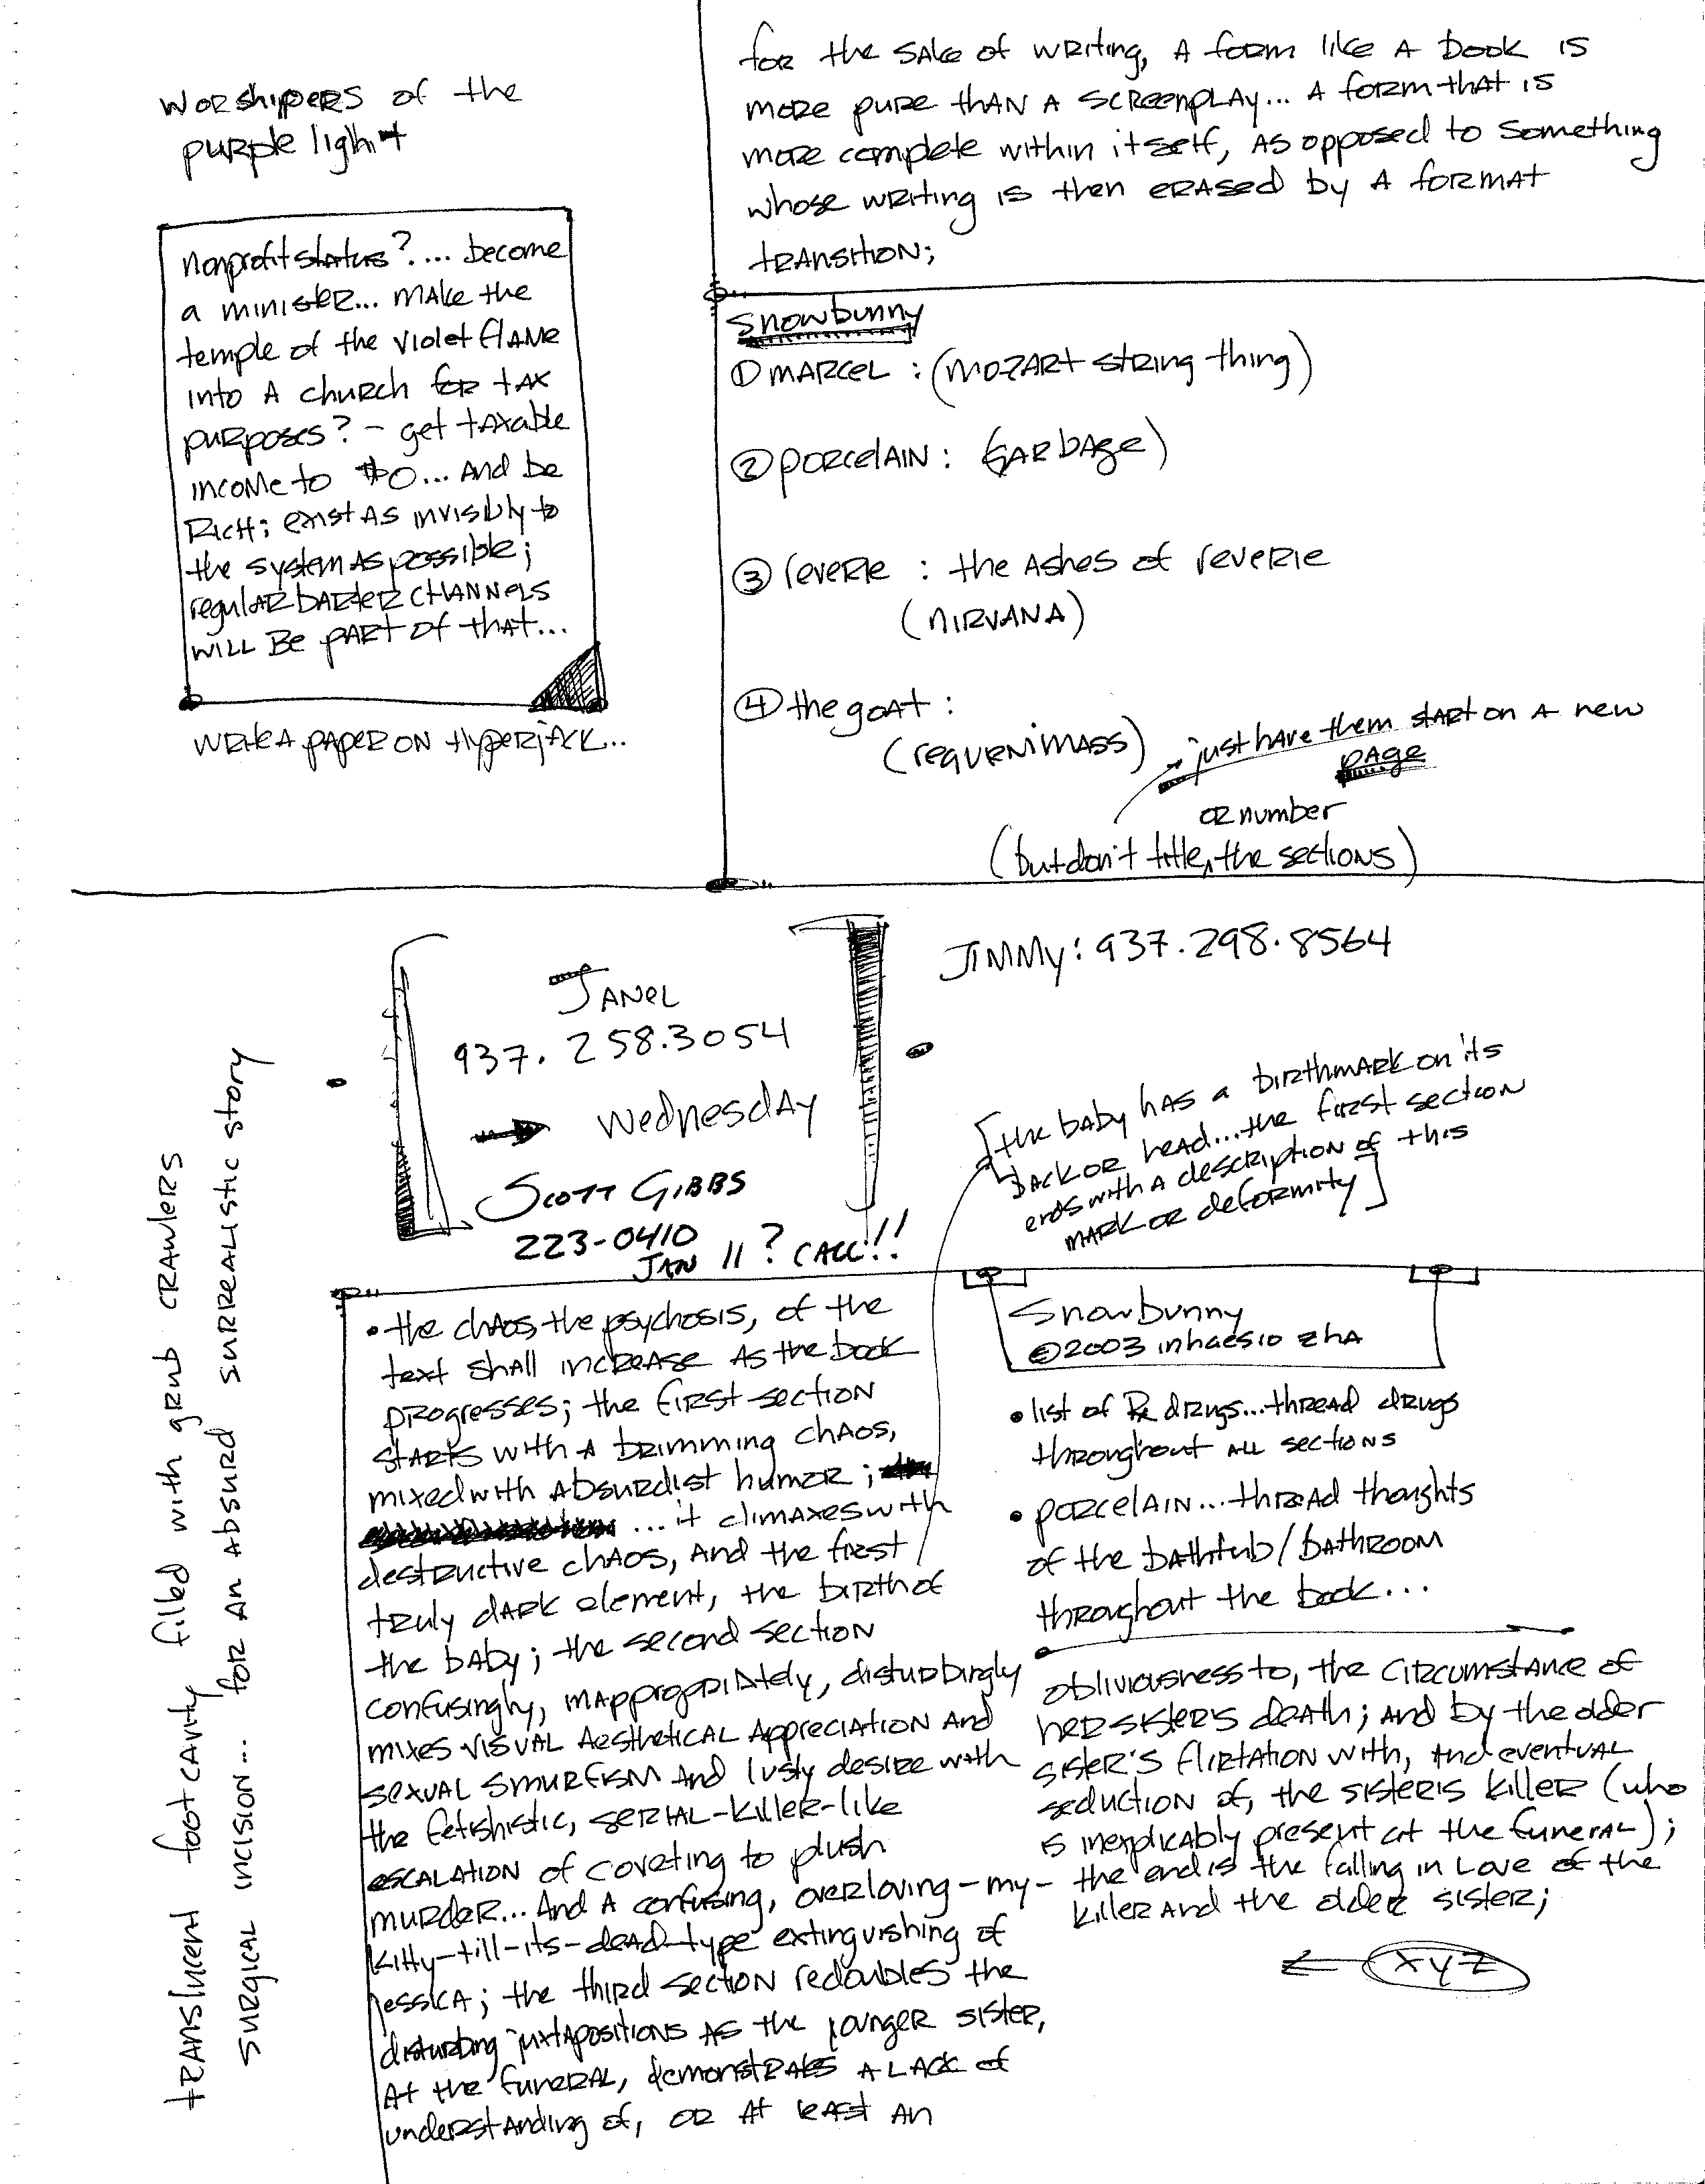 worshippers of the
purple light
nonprofit status?... become
a minister... make the
temple of the violet flame
into a church for tax
purposes? - get taxable
income to $0... and be
rich; exist as invisibly to
the system as possible;
regular barter channels
will be part of that...
write a paper on hyperjack...
for the sake of writing, a form like a book is
more pure than a screenplay... a form that is
more complete within itself, as opposed to something
whose writing is then erased by a format
transition;
snowbunny
① marcel : (mozart string thing)
② porcelain : (garbage)
③ reverie : the ashes of reverie
(nirvana)
④ the goat :
(requiem mass)
just have them start on a new
page
or number
(but don't title, the sections)
Janel
937. 258.3054
→ wednesday
Scott Gibbs
223-0410
Jan 11? call!!
Jimmy: 937.298.8564
[the baby has a birthmark on its
back or head...the first section
ends with a description of this
mark or deformity]
translucent foot cavity filled with grub crawlers
surgical incision... for an absurd surrealistic story
• the chaos, the psychosis, of the
text shall increase as the book
progresses; the first section
starts with a brimming chaos,
mixed with absurdist humor;
...it climaxes with
destructive chaos, and the first
truly dark element, the birth of
the baby; the second section
confusingly, inappropriately, disturbingly
mixes visual aesthetical appreciation and
sexual smurfism and lusty desire with
the fetishistic, serial-killer-like
escalation of coveting to plush
murder... and a confusing, overloving-my-
kitty-till-its-dead-type extinguishing of
jessica; the third section redoubles the
disturbing juxtapositions as the younger sister,
at the funeral, demonstrates a lack of
understanding of, or at least an
snowbunny
©2003 inhaesio zha
• list of Rx drugs...thread drugs
throughout all sections
• porcelain...thread thoughts
of the bathtub/bathroom
throughout the book...
obliviousness to, the circumstance of
her sister's death; and by the older
sister's flirtation with, and eventual
seduction of, the sister's killer (who
is inexplicably present at the funeral);
the end is the falling in love of the
killer and the older sister;
← xyz